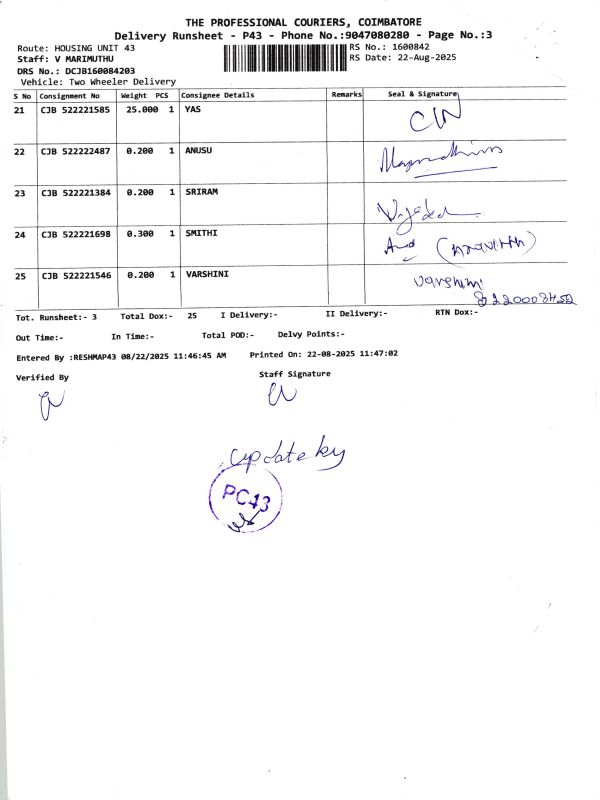 THE PROFESSIONAL COURIERS, COIMBATORE
Delivery Runsheet - P43 - Phone No.:9047080280 - Page No.:3
Route: HOUSING UNIT 43 RS No.: 1600842
Staff: V MARIMUTHU RS Date: 22-Aug-2025
DRS No.: DCJB160084203
Vehicle: Two Wheeler Delivery
S No Consignment No Weight PCS Consignee Details Remarks Seal & Signature
21 CJB 522221585 25.000 1 YAS
22 CJB 522222487 0.200 1 ANUSU
23 CJB 522221384 0.200 1 SRIRAM
24 CJB 522221698 0.300 1 SMITHI
25 CJB 522221546 0.200 1 VARSHINI Varshini
Tot. Runsheet:- 3 Total Dox:- 25 I Delivery:- II Delivery:- RTN Dox:-
Out Time:- In Time:- Total POD:- Delvy Points:-
Entered By :RESHMAP43 08/22/2025 11:46:45 AM Printed On: 22-08-2025 11:47:02
Verified By Staff Signature
update by
PC43